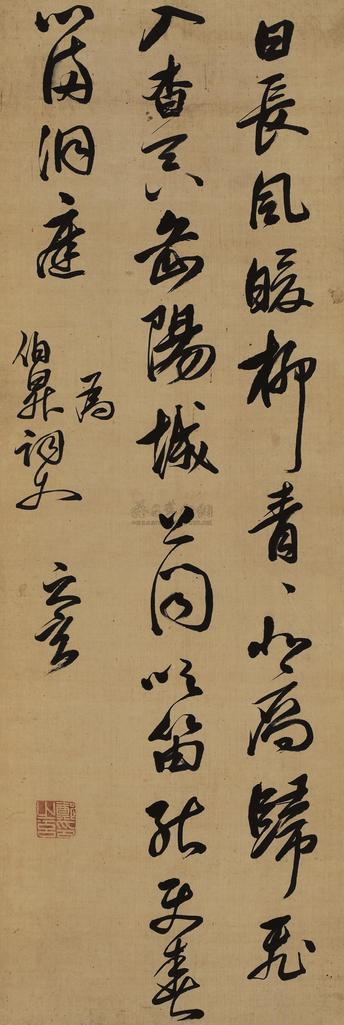 日長風暖柳青〻北鴈歸飛
入杳冥岳陽城上聞吹笛能使春
心滿洞庭
為
伯昇詞丈